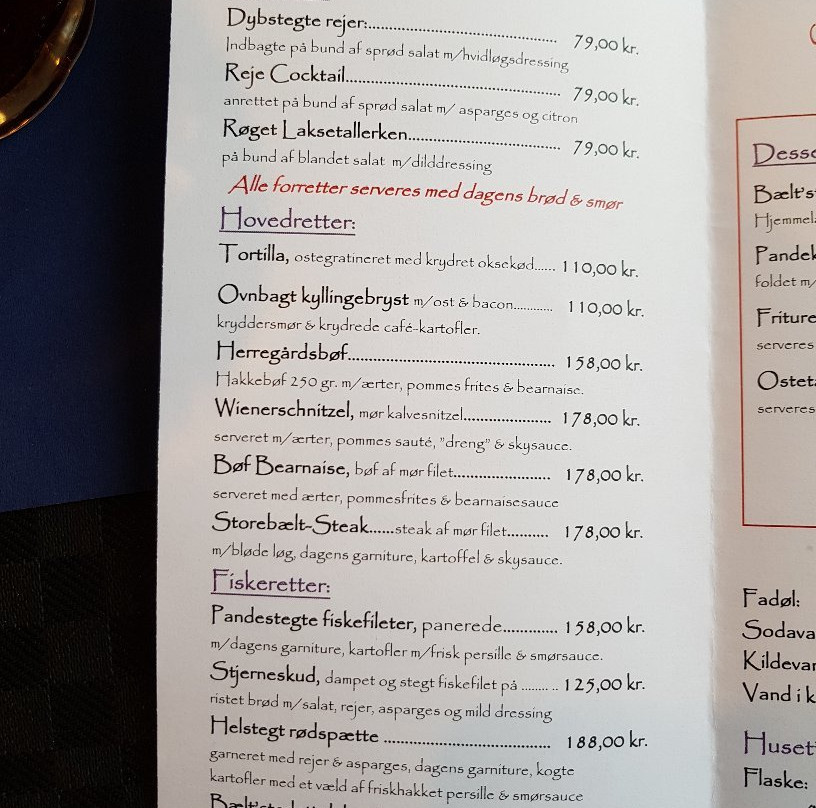 Dybstegte rejer:........................................ 79,00 kr.
Indbagte på bund af sprød salat m/hvidløgsdressing
Reje Cocktail............................................. 79,00 kr.
anrettet på bund af sprød salat m/ asparges og citron
Røget Laksetallerken................................ 79,00 kr.
på bund af blandet salat m/dilddressing
Alle forretter serveres med dagens brød & smør
Hovedretter:
Tortilla, ostegratineret med krydret oksekød...... 110,00 kr.
Ovnbagt kyllingebryst m/ost & bacon............ 110,00 kr.
kryddersmør & krydrede café-kartofler.
Herregårdsbøf........................................... 158,00 kr.
Hakkebøf 250 gr. m/ærter, pommes frites & bearnaise.
Wienerschnitzel, mør kalvesnitzel...................... 178,00 kr.
serveret m/ærter, pommes sauté, "dreng" & skysauce.
Bøf Bearnaise, bøf af mør filet........................ 178,00 kr.
serveret med ærter, pommesfrites & bearnaisesauce
Storebælt-Steak......steak af mør filet.......... 178,00 kr.
m/bløde løg, dagens garniture, kartoffel & skysauce.
Fiskeretter:
Pandestegte fiskefileter, panerede............. 158,00 kr.
m/dagens garniture, kartofler m/frisk persille & smørsauce.
Stjerneskud, dampet og stegt fiskefilet på ........ .. 125,00 kr.
ristet brød m/salat, rejer, asparges og mild dressing
Helstegt rødspætte .................................... 188,00 kr.
garneret med rejer & asparges, dagens garniture, kogte
kartofler med et væld af friskhakket persille & smørsauce
Desse
Bælt's
Hjemmel
Pandek
foldet m/
Friture
serveres
Osteta
serveres
Fadøl:
Sodava
Kildevan
Vand i k
Huset
Flaske: